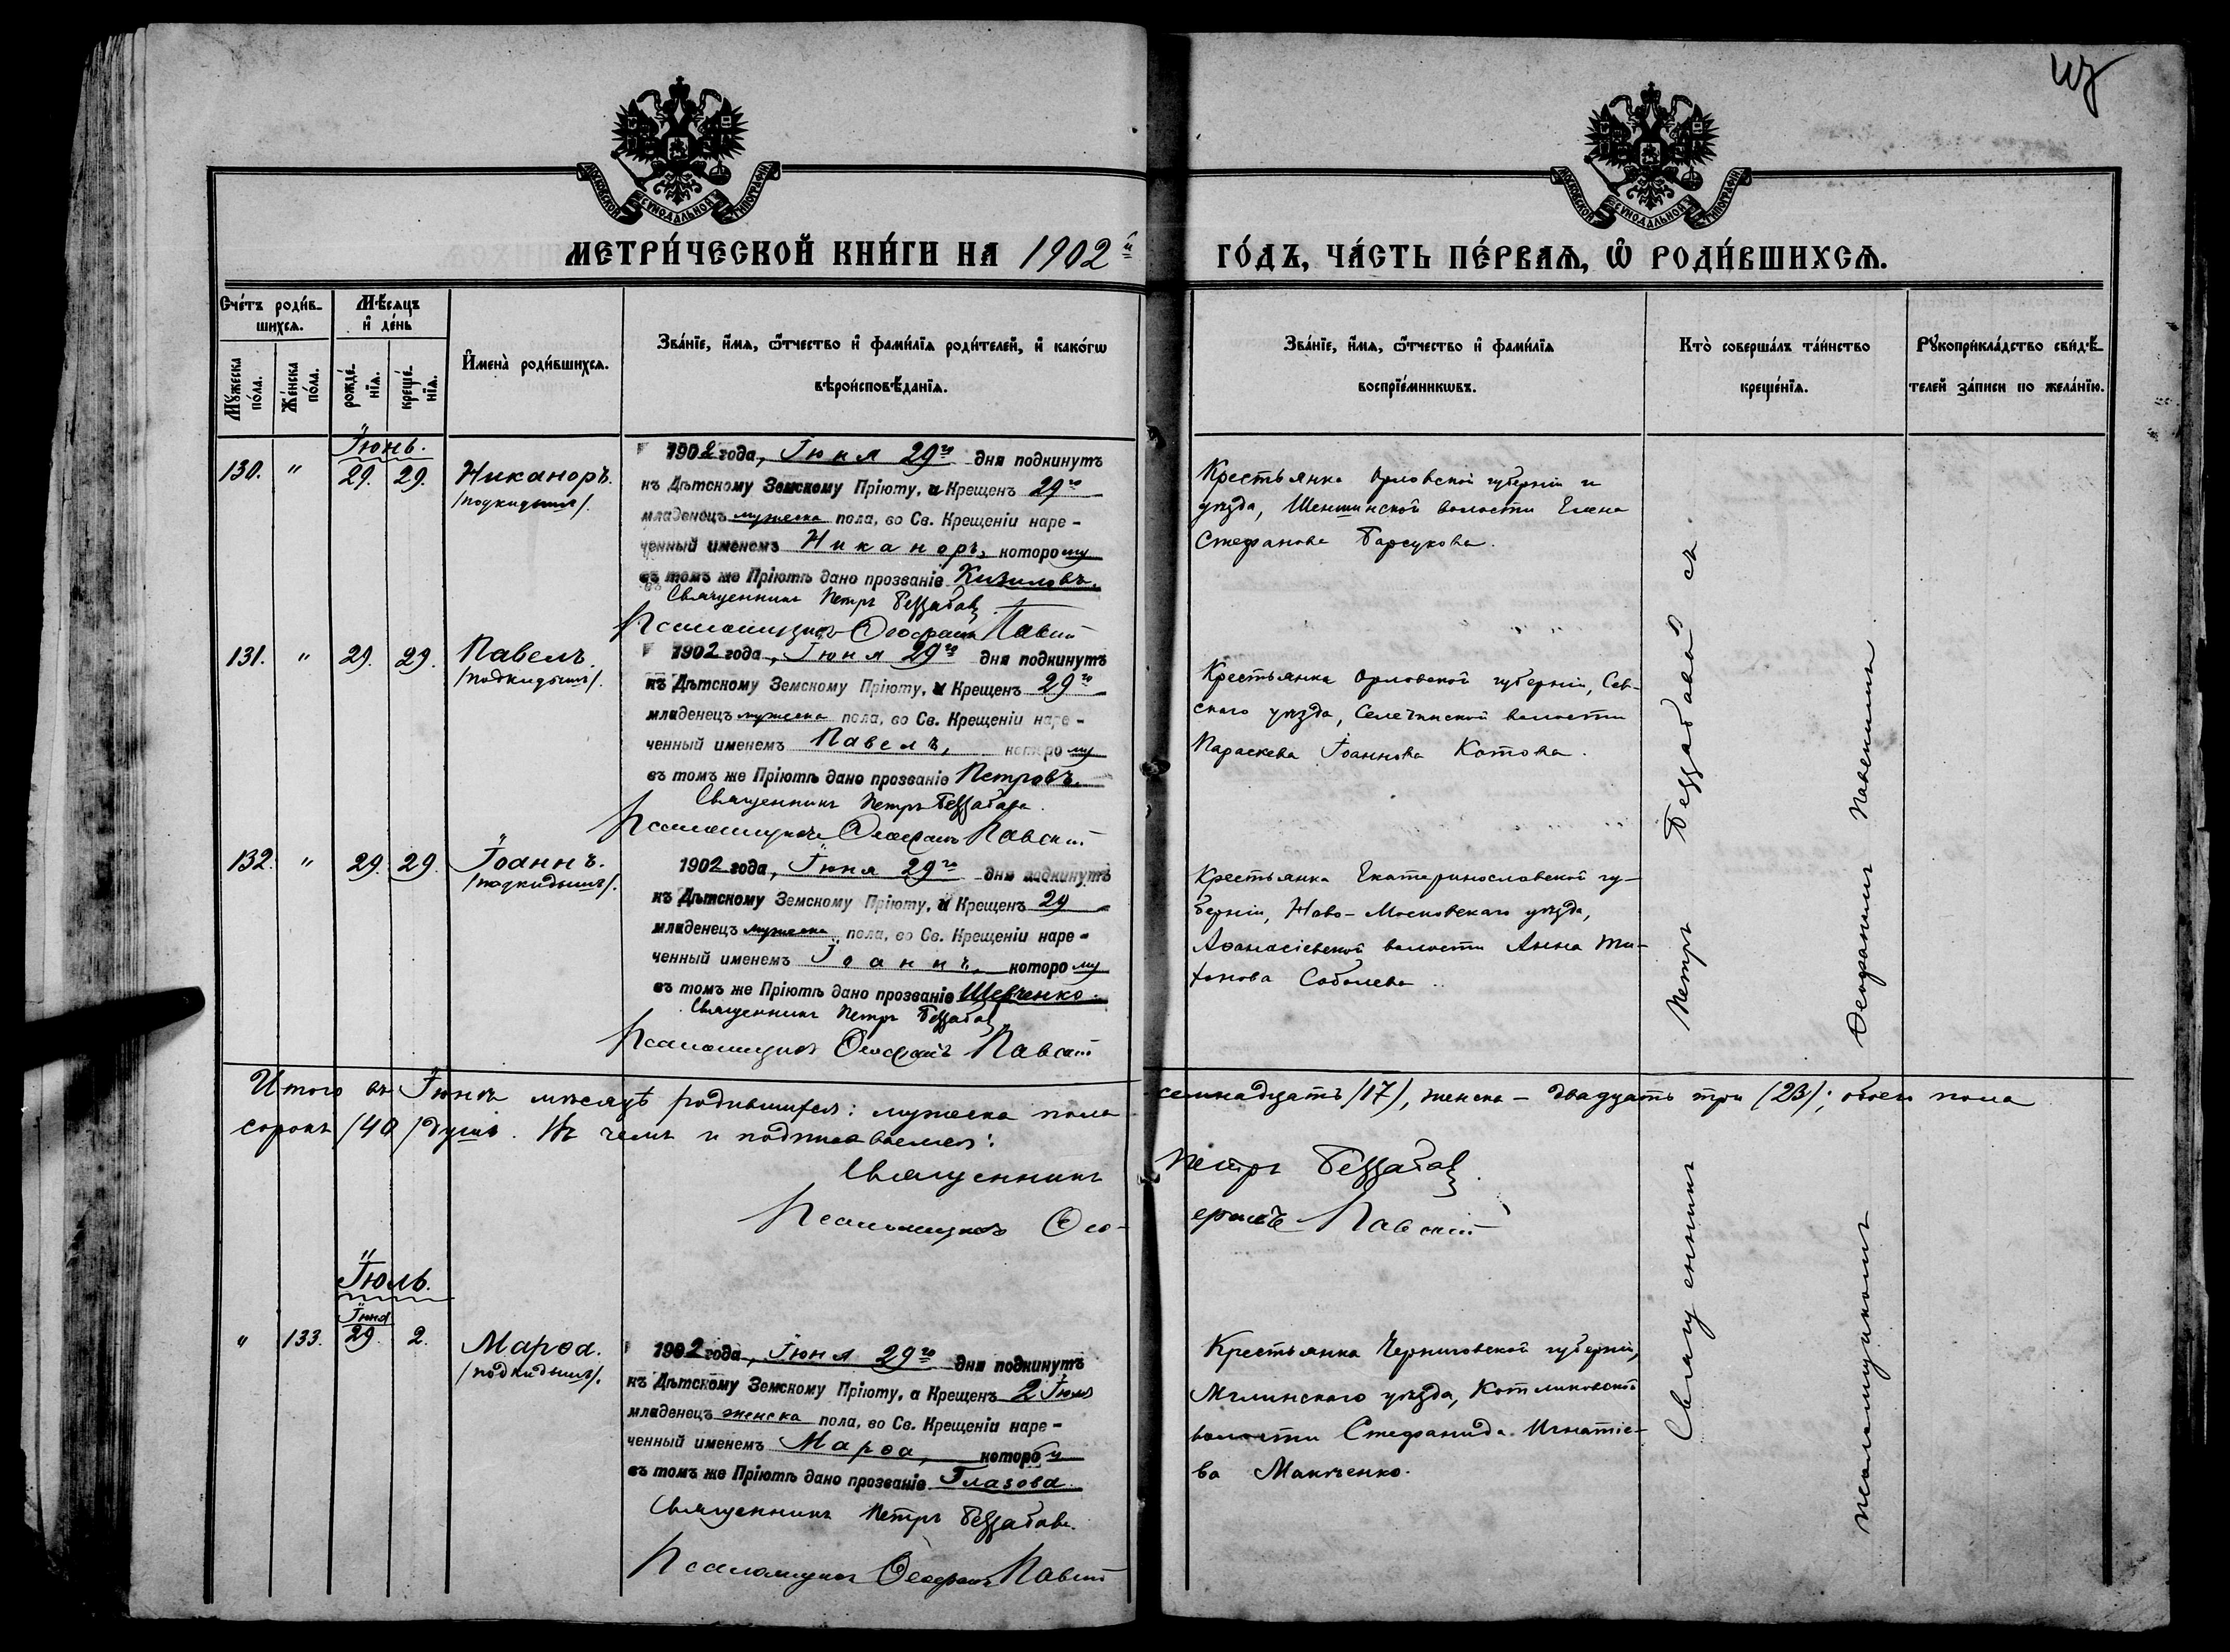 из
МОСКОВСКОЙ СѴНОДАЛЬНОЙ ТИПОГРАФІИ
МОСКОВСКОЙ СѴНОДАЛЬНОЙ ТИПОГРАФІИ
МЕТРИ́ЧЕСКОЙ КНИ́ГИ НА 1902й
ГО́ДЪ, ЧА́СТЬ ПЕ́РВАѦ, Ѽ РОДИ́ВШИХСѦ.
Сче́тъ роди́в-
шихсѧ.
Мꙋ́жеска
по́ла.
Же́нска
по́ла.
Мѣ́сѧцъ
и҆ де́нь
рожде́-
нїѧ.
креще́-
нїѧ.
И҆мена̀ роди́вшихсѧ.
Зва́нїе, и҆́мѧ, ѻ҆́тчество и҆ фами́лїѧ роди́телей, и҆ како́гѡ
вѣроисповѣ́данїѧ.
Зва́нїе, и҆́мѧ, ѻ҆́тчество и҆ фами́лїѧ
воспрїе́мникѡвъ.
Кто̀ соверша́лъ та́инство
креще́нїѧ.
Рꙋкоприкла́дство свидѣ́-
телей за́писи по жела́нїю.
Іюнь.
130. " 29. 29. Никаноръ.
/подкидышъ/.
1902 года, Іюня 29го дня подкинутъ
къ Дѣтскому Земскому Пріюту, и Крещенъ 29го
младенецъ мужеска пола, во Св. Крещеніи наре-
ченный именемъ Никаноръ, которому
въ томъ же Пріютѣ дано прозваніе Кизиловъ.
Священникъ Петръ Беззабавъ
Псаломщикъ Ѳеофанъ Павскій
Крестьянка Орловской губерніи и
уѣзда, Шеншинской волости Елена
Стефанова Барсукова.
131. " 29. 29. Павелъ.
/подкидышъ/.
1902 года, Іюня 29го дня подкинутъ
къ Дѣтскому Земскому Пріюту, и Крещенъ 29го
младенецъ мужеска пола, во Св. Крещеніи наре-
ченный именемъ Павелъ, которому
въ томъ же Пріютѣ дано прозваніе Петровъ.
Священникъ Петръ Беззабавъ.
Псаломщикъ Ѳеофанъ Павскій
Крестьянка Орловской губерніи, Сѣв-
скаго уѣзда, Селечинской волости
Параскева Іоаннова Котова.
132. " 29. 29. Іоаннъ.
/подкидышъ/.
1902 года, Іюня 29го дня подкинутъ
къ Дѣтскому Земскому Пріюту, и Крещенъ 29
младенецъ мужеска пола, во Св. Крещеніи наре-
ченный именемъ Іоаннъ, которому
въ томъ же Пріютѣ дано прозваніе Шевченко.
Священникъ Петръ Беззабавъ
Псаломщикъ Ѳеофанъ Павскій
Крестьянка Екатеринославской гу-
берніи, Ново-Московскаго уѣзда,
Аѳанасіевской волости Анна Ти-
хонова Соболева.
Итого въ Іюнѣ мѣсяцѣ родившихся: мужеска пола семнадцать /17/, женска – двадцать три (23); обоего пола
сорокъ /40/ душъ. Въ чемъ и подписываемся:
Священникъ Петръ Беззабавъ.
Псаломщикъ Ѳео-
фанъ Павскій
Іюль.
Іюня
" 133. 29. 2. Марѳа.
/подкидышъ/.
1902 года, Іюня 29го дня подкинутъ
къ Дѣтскому Земскому Пріюту, а Крещенъ 2 Іюля
младенецъ женска пола, во Св. Крещеніи наре-
ченный именемъ Марѳа, которой
въ томъ же Пріютѣ дано прозваніе Глазова.
Священникъ Петръ Беззабавъ.
Псаломщикъ Ѳеофанъ Павскій
Крестьянка Черниговской губерніи,
Мглинскаго уѣзда, Котляковской
волости Стефанида Игнатіе-
ва Макченко.
Священникъ Петръ Беззабавъ съ
псаломщикомъ Ѳеофаномъ Павскимъ